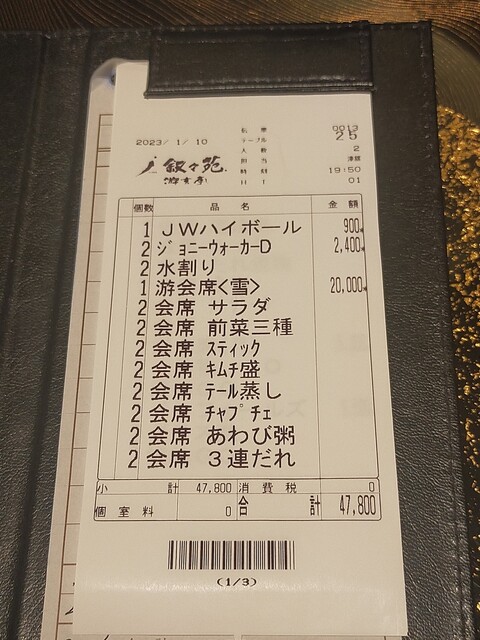 伝票 0013
テーブル 25
2023/ 1/10 人数 2
叙々苑 担当 津畑
游玄亭 時刻 19:50
01
個数 品名 金額
1 JWハイボール 900
2 ジョニーウォーカーD 2,400
2 水割り
1 游会席<雪> 20,000
2 会席 サラダ
2 会席 前菜三種
2 会席 スティック
2 会席 キムチ盛
2 会席 テール蒸し
2 会席 チャプチェ
2 会席 あわび粥
2 会席 3連だれ
小計 47,800 消費税 0
個室料 0 合計 47,800
(1/3)